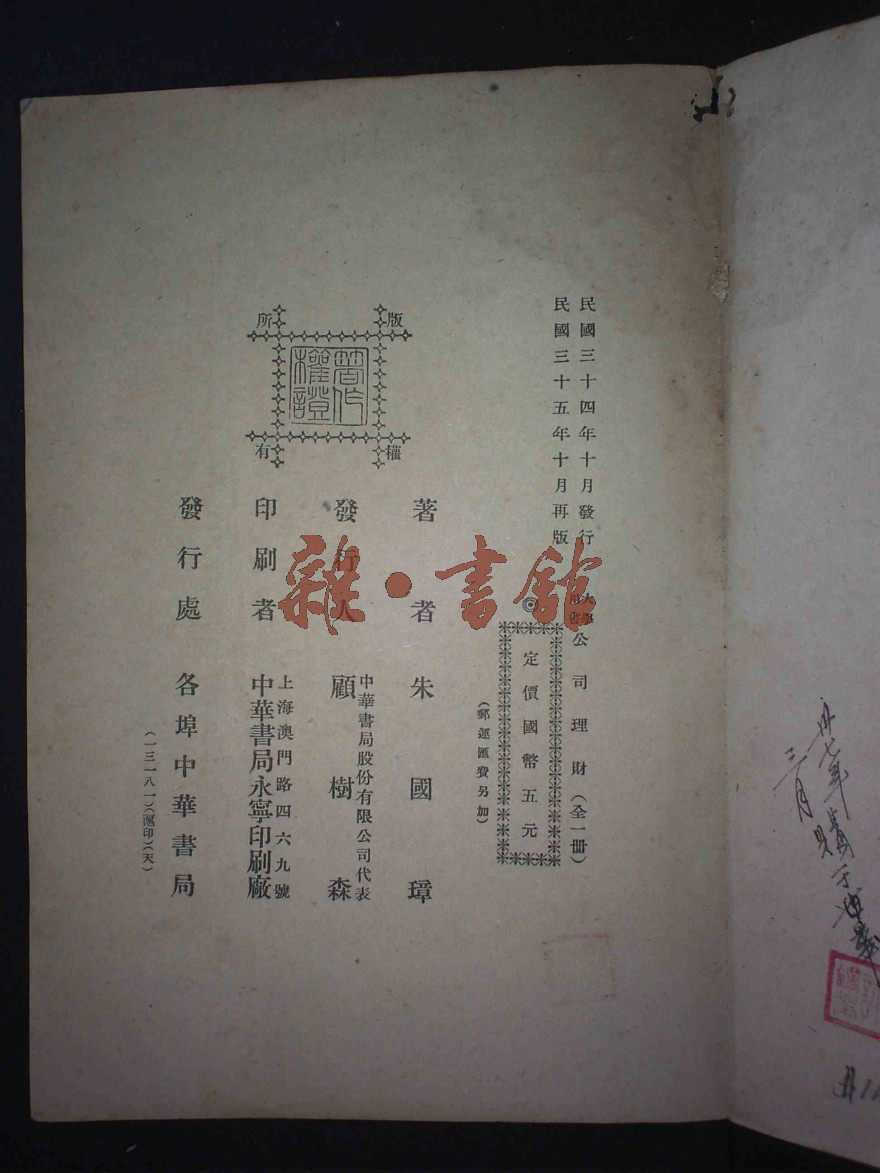 民國三十四年十月發行
民國三十五年十月再版
大學用書 公司理財（全一冊）
◎定價國幣五元
（郵運匯費另加）
著者 朱國璋
發行人 顧樹森
中華書局股份有限公司代表
印刷者 中華書局永寧印刷廠
上海澳門路四六九號
發行處 各埠中華書局
（一三一八一）（滬印）（天）
版權所有
著作權證
雜·書館
卅七年
三月